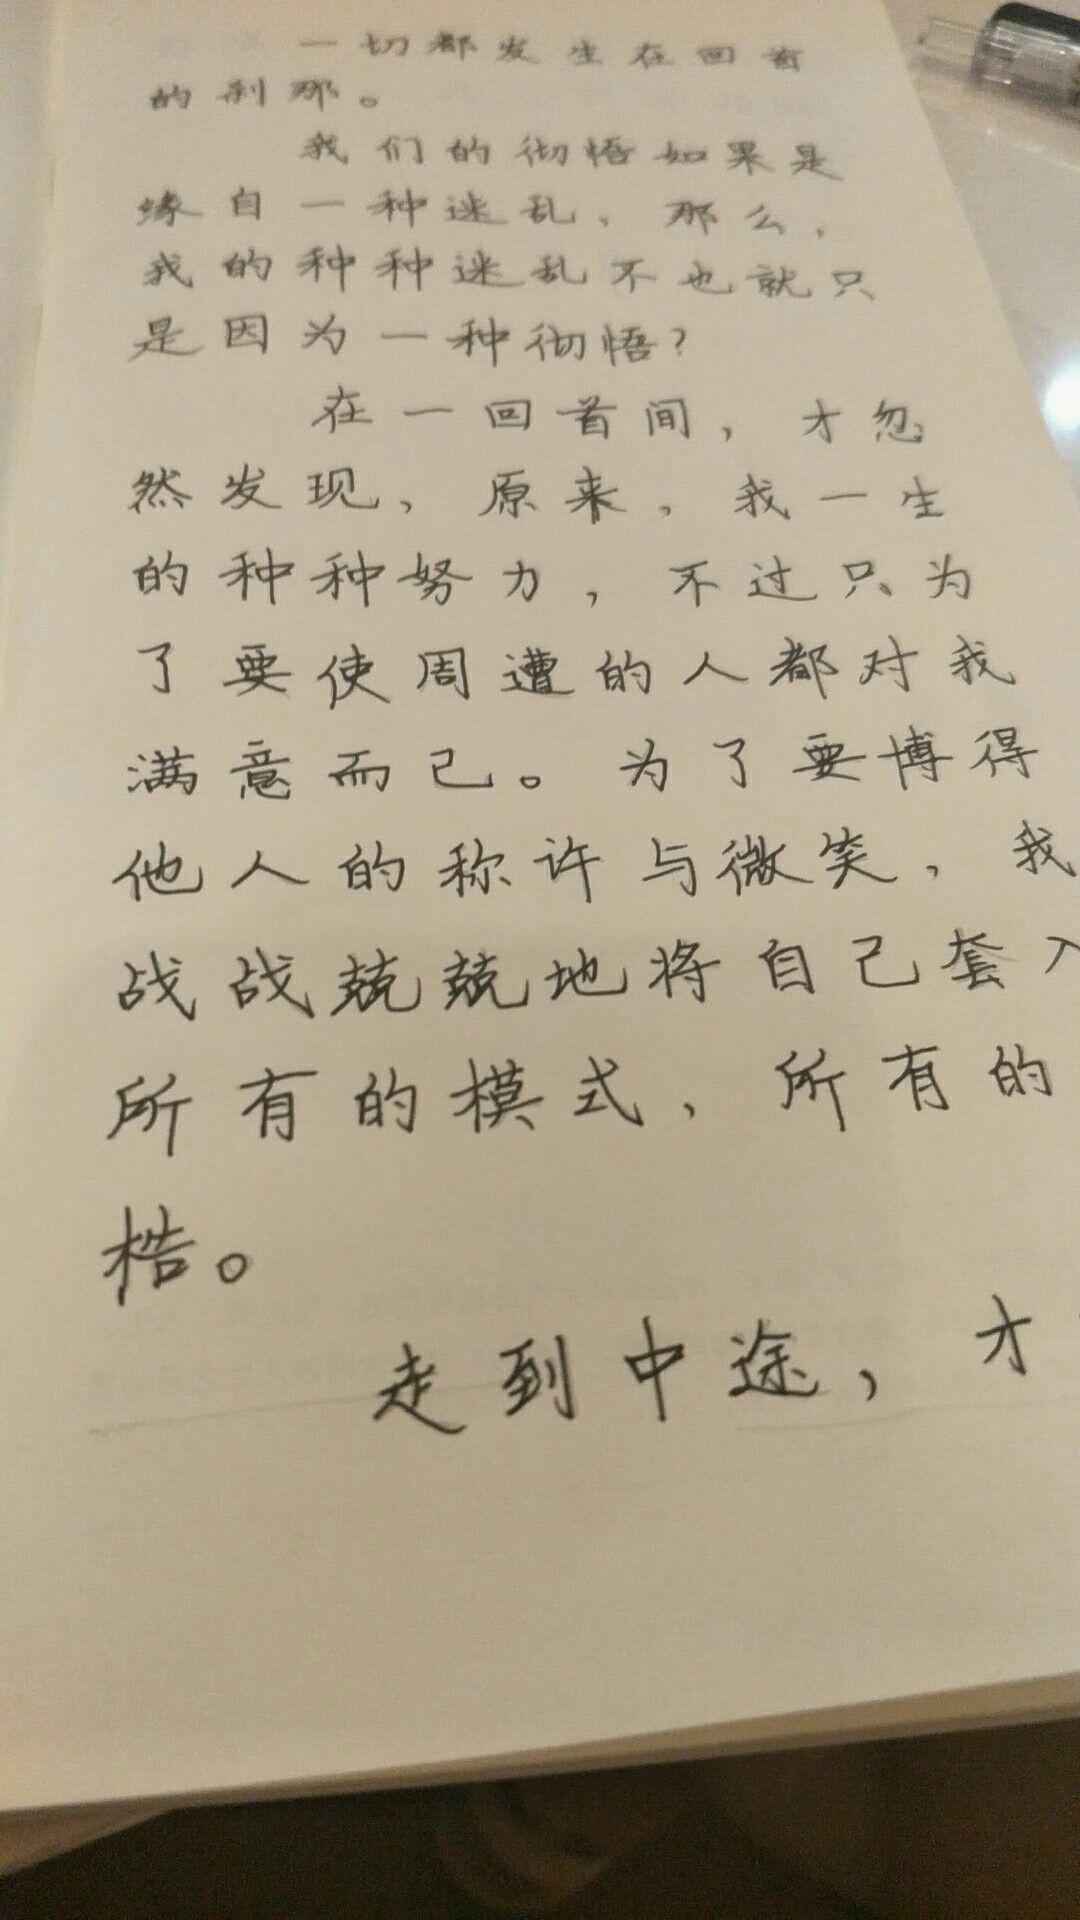 一切都发生在回首
的刹那。
我们的彻悟如果是
缘自一种迷乱，那么，
我的种种迷乱不也就只
是因为一种彻悟？
在一回首间，才忽
然发现，原来，我一生
的种种努力，不过只为
了要使周遭的人都对我
满意而已。为了要博得
他人的称许与微笑，我
战战兢兢地将自己套入
所有的模式、所有的
梏。
走到中途，才